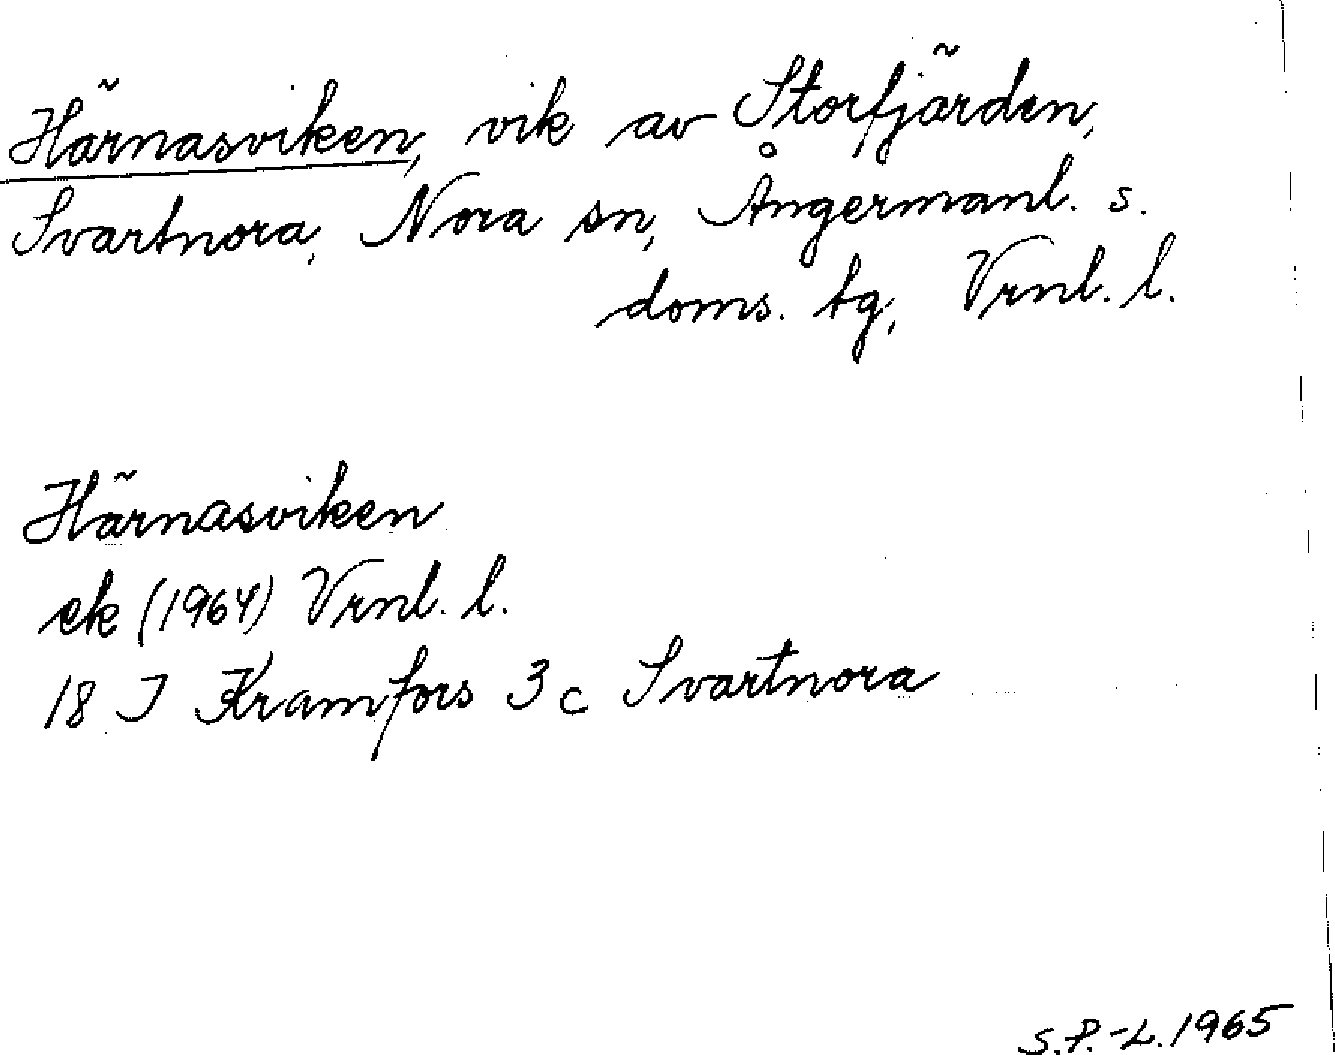 Härnasviken, vik av Storfjärden,
Svartnora, Nora sn, Ångermanl. s.
doms. tg, Vrnl. l.
Härnasviken
ek (1964) Vrnl. l.
18 J Kramfors 3 c Svartnora
S.P.-L. 1965